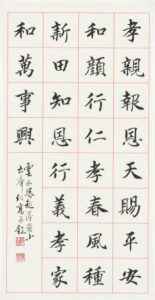 孝親報恩天賜平安
和顏行仁孝春風種
新田知恩行義孝家
和萬事興